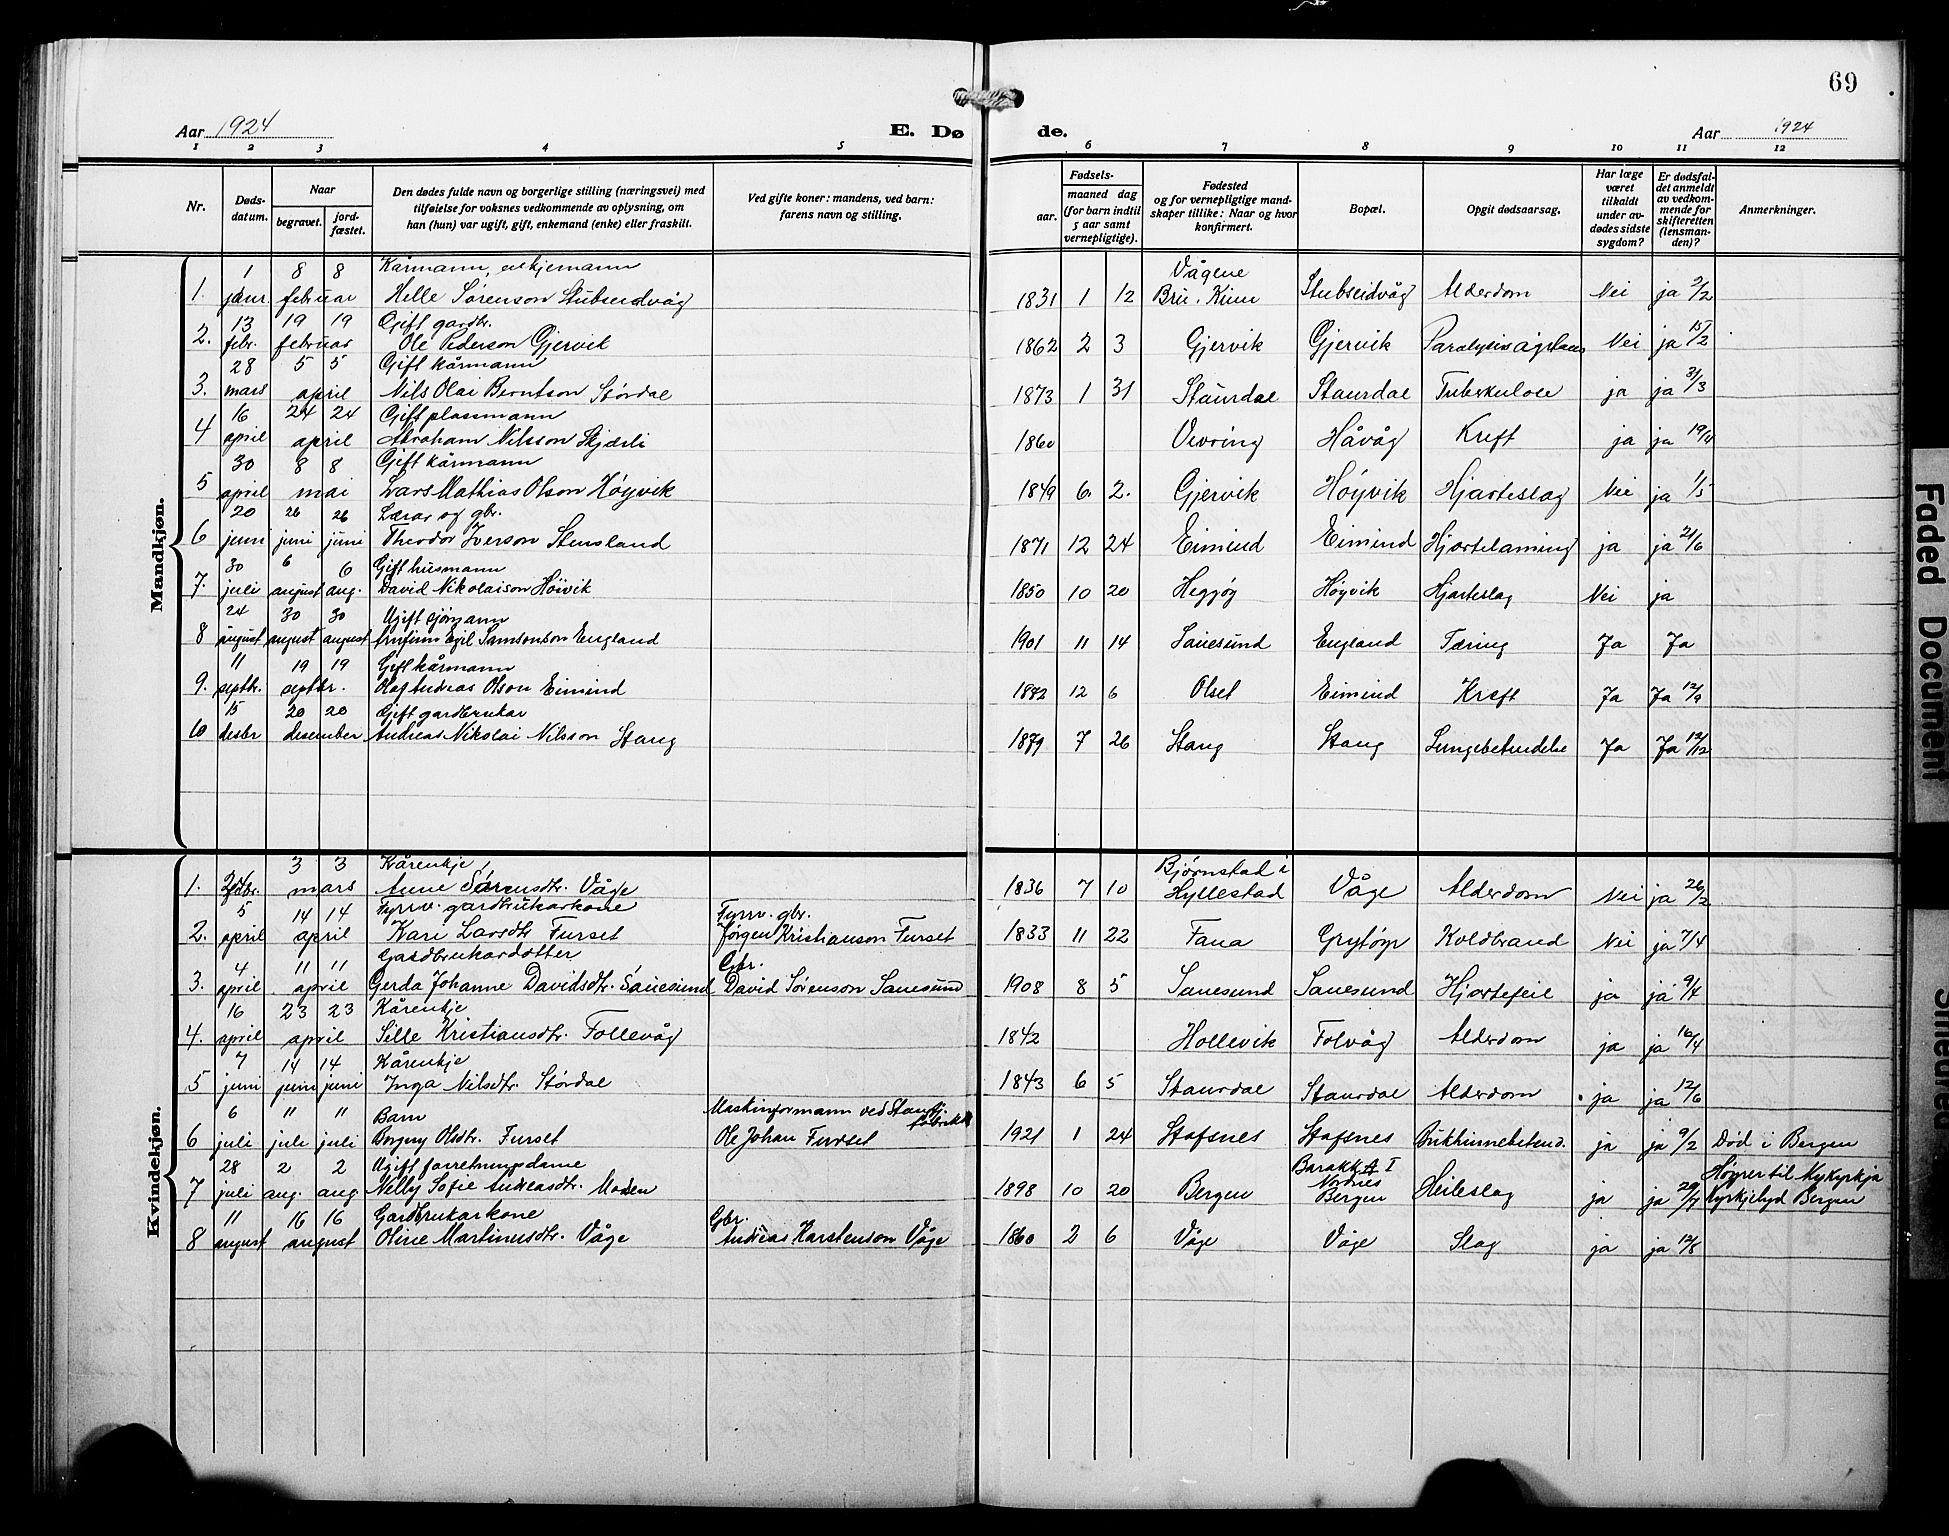 69
Aar 1924
E. Dø de.
Aar 1924
1 2 3 4 5 6 7 8 9 10 11 12
Nr.
Døds-datum.
Naar
begravet.
jord-fæstet.
Den dødes fulde navn og borgerlige stilling (næringsvei) med
tilføielse for voksnes vedkommende av oplysning, om
han (hun) var ugift, gift, enkemand (enke) eller fraskilt.
Ved gifte koner: mandens, ved barn:
farens navn og stilling.
Fødsels-
aar.
maaned dag
(for barn indtil
5 aar samt
vernepligtige).
Fødested
og for vernepligtige mand-
skaper tillike: Naar og hvor
konfirmert.
Bopæl.
Opgit dødsaarsag.
Har læge
været
tilkaldt
under av-
dødes sidste
sygdom?
Er dødsfal-
det anmeldt
av vedkom-
mende for
skifteretten
(lensman-
den)?
Anmerkninger.
Mandkjøn.
1 8 8 Kårmann, enkjemann Vågene
1. janr. februar Helle Sørenson Stubseidvåg 1831 1 12 Bru, Kinn Stubseidvåg Alderdom Nei ja 2/2
13 19 19 Gift gardbr.
2. febr. februar Ole Pederson Gjervik 1862 2 3 Gjervik Gjervik Paralysis agitans Nei ja 15/2
28 5 5 Gift kårmann
3. mars april Nils Olai Berntson Stórdal 1873 1 31 Staurdal Staurdal Tuberkulose ja ja 31/3
16 24 24 Gift plassmann
4 april april Abraham Nilsson Skjærli 1860 Vevring Håvåg Kreft ja ja 19/4
30 8 8 Gift kårmann
5 april mai Lars Mathias Olson Høyvik 1849 6. 2. Gjervik Höyvik Hjarteslag Nei ja 1/5
20 26 26 Lærar og gbr.
6 juni juni juni Theodor Iverson Stensland 1871 12 24 Eimind Eimind Hjartelaming ja ja 21/6
30 6 6 Gift husmann
7. juli august aug. David Nikolaison Höivik 1850 10 20 Heggøy Høyvik Hjarteslag Nei ja
24 30 30 Ugift sjømann
8 august august august Arnfinn Egil Samsonson England 1901 11 14 Sauesund England Tæring Ja Ja
11 19 19 Gift kårmann
9. septbr. septbr. Olaf Andreas Olson Eimind 1842 12 6 Olset Eimind Kreft Ja Ja 12/9
15 20 20 Gift gardbrukar
10 desbr desember Andreas Nikolai Nilsson Stang 1879 7 26 Stang Stang Lungebetendelse Ja Ja 12/12
Kvindekjøn.
3 3 Kårenkje Bjørnstad i
1. 24 febr. mars Anne Sørensdtr. Våge 1836 7 10 Hyllestad Våge Alderdom Nei ja 26/2
5 14 14 Fyrrv. gardbrukarkone Fyrrv. gbr.
2. april april Kari Larsdtr Furset Jørgen Kristianson Furset 1833 11 22 Fana Grytøyr Koldbrand Nei ja 7/4
4 11 11 Gardbrukardotter Gbr.
3. april april Gerda Johanne Davidsdtr. Sauesund David Sørenson Sauesund 1908 8 5 Sauesund Sauesund Hjartefeil ja ja 9/4
16 23 23 Kårenkje
4. april april Sille Kristiansdtr. Follevåg 1842 Hollevik Folvåg Alderdom ja ja 16/4
7 14 14 Kårenkje
5 juni juni juni Inga Nilsdtr. Stórdal 1843 6 5 Staurdal Staurdal Alderdom ja ja 12/6
6 11 11 Barn Maskinformann ved Stangfj. fabrikk
6 juli juli juli Borgny Olsdtr. Furset Ole Johan Furset 1921 1 24 Stafsnes Stafsnes Bukhinnebetend. ja ja 9/2 Död i Bergen
28 2 2 Ugift forretningsdame Barakk A I Høyrer til Nykyrkja
7 juli aug. aug. Nelly Sofie Andreasdtr. 1898 10 20 Bergen Nordnes Bergen Heileslag ja ja kyrkjelyd Bergen
11 16 16 Gardbrukarkone Gbr.
8 august august Oline Martinusdtr. Våge Andreas Karstenson Våge 1860 2 6 Våge Våge Slag ja ja 12/8
Faded Document
Smeared